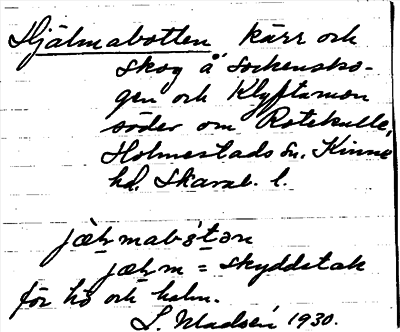 Hjälmabotten kärr och
skog å sockensko-
gen och Klyftamon
söder om Rotekulle,
Holmestads sn. Kinne
hd. Skarab. l.
jæl̥mabɔ́tən
jæl̥m = skyddstak
för hö och halm.
1930.